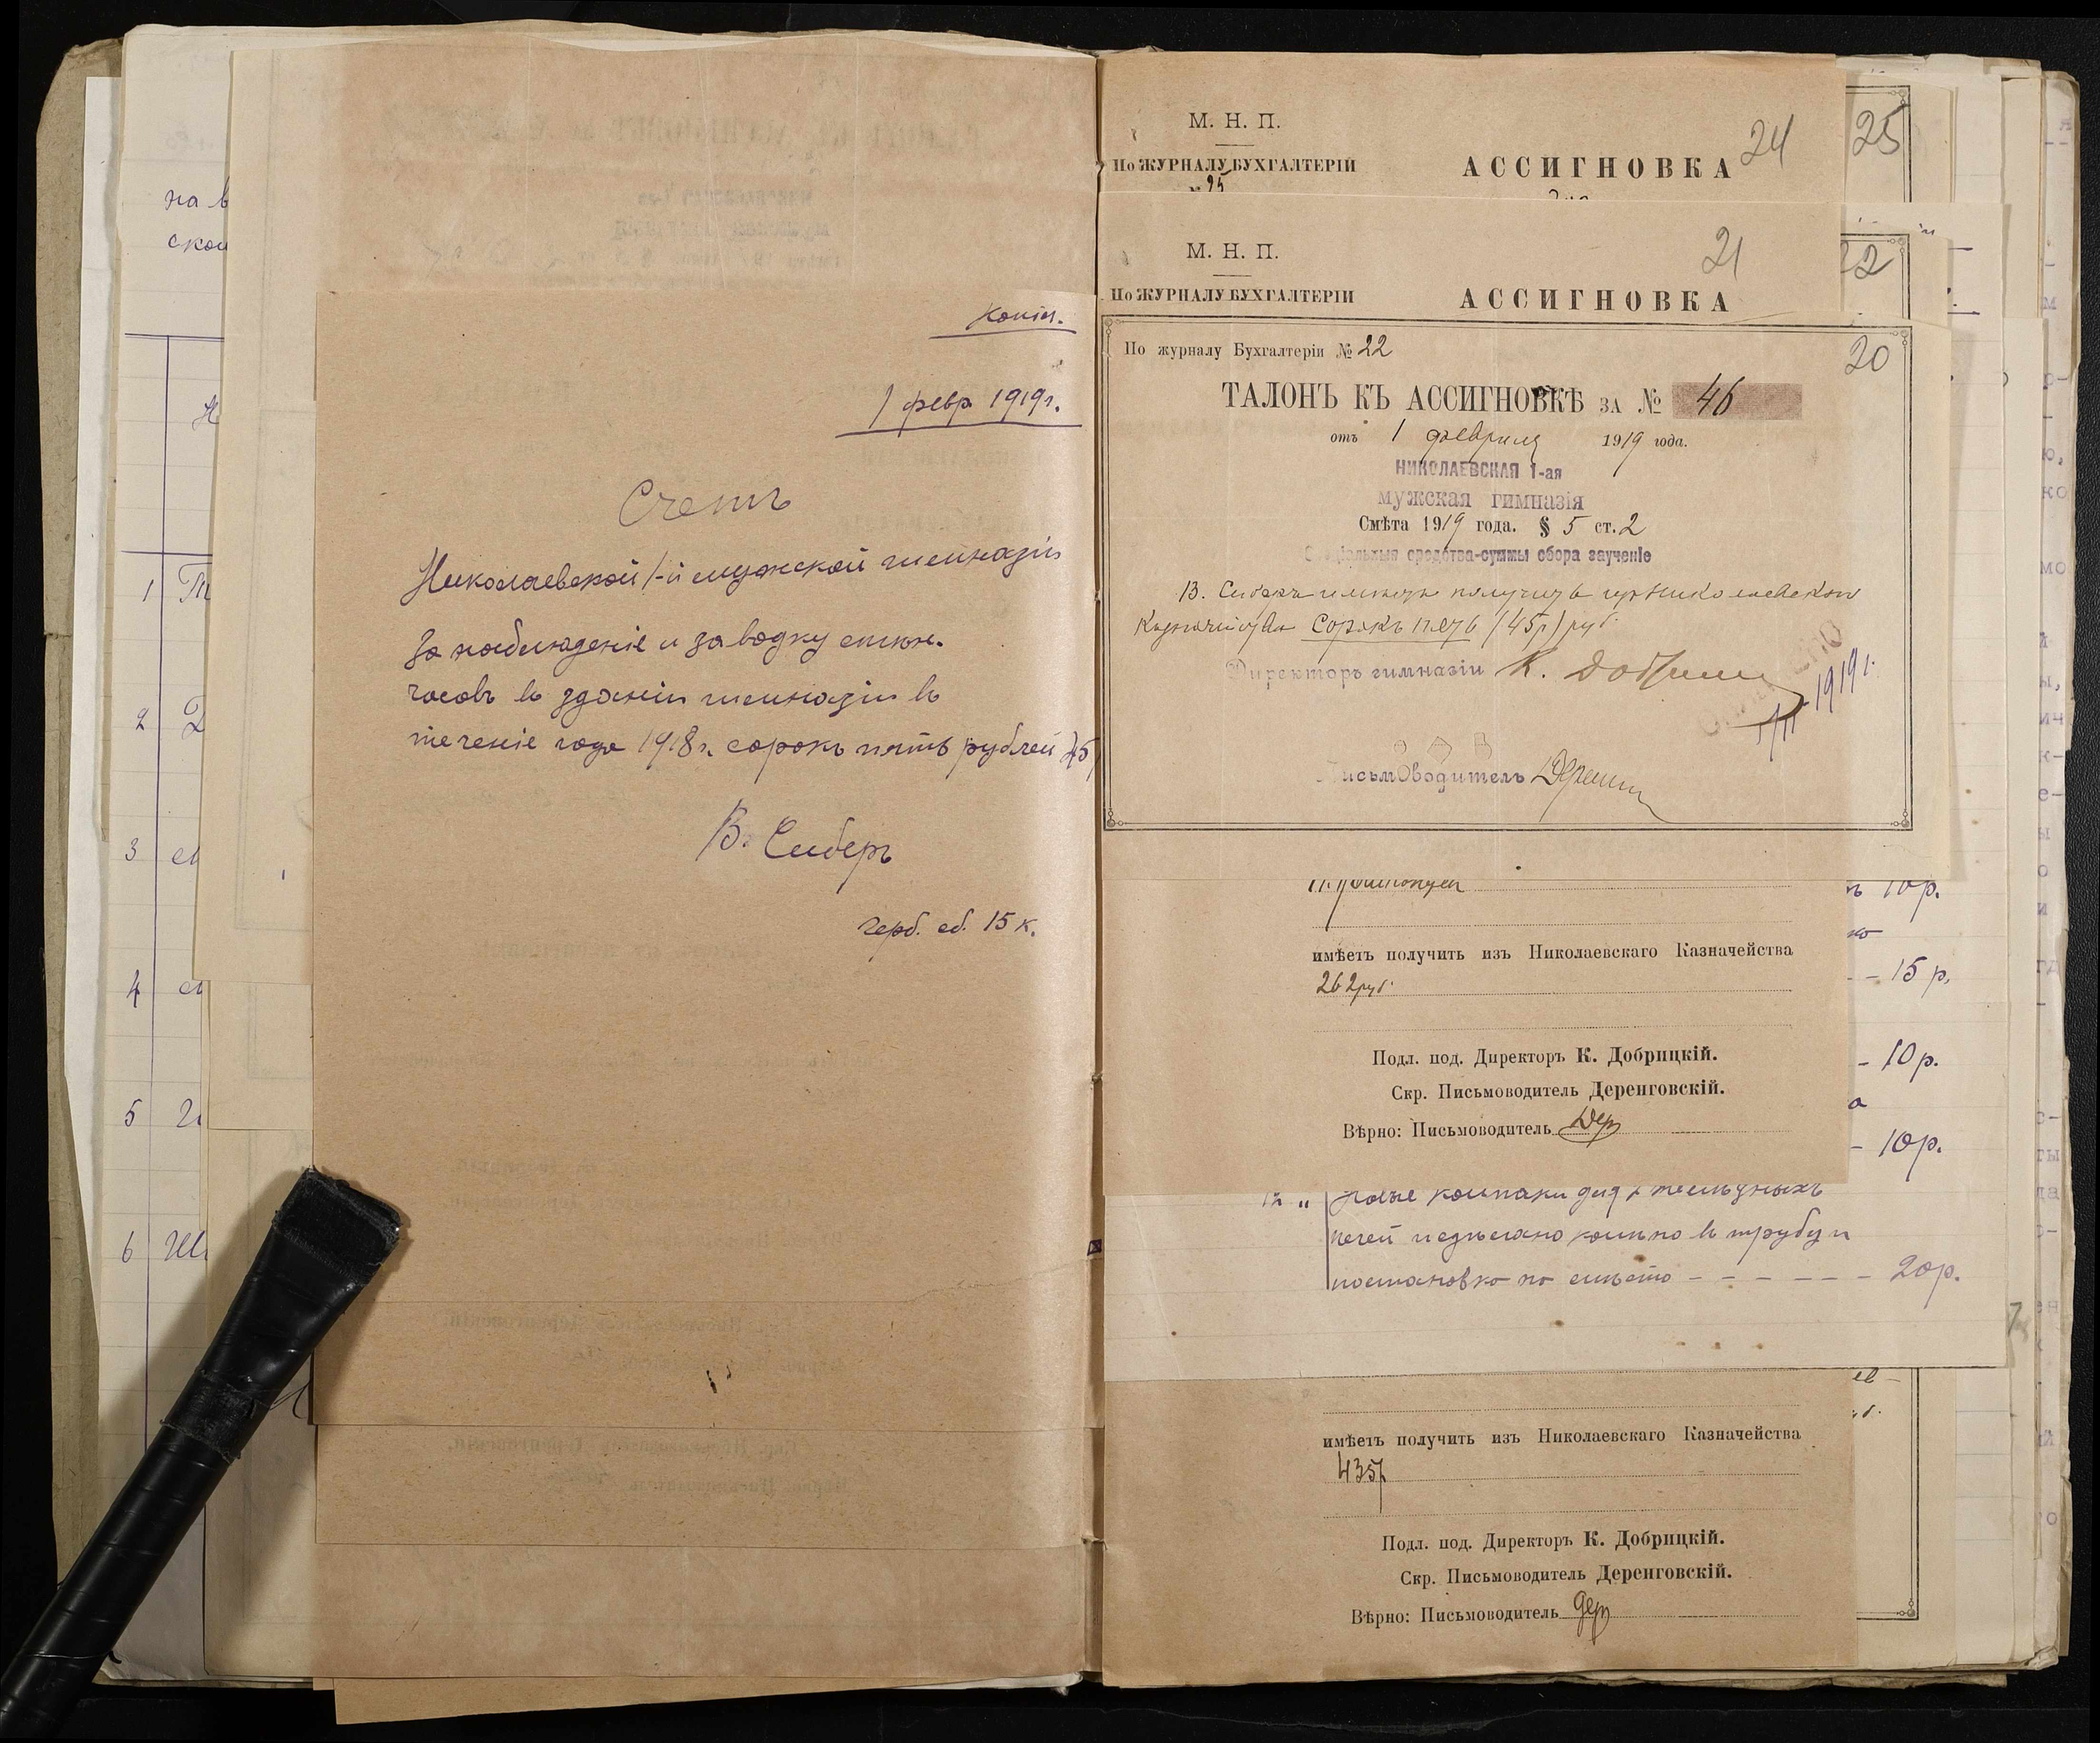 на в
скои
1
2
3
4
5
6
Копія.
1 февр 1919г.
Счетъ
Николаевской 1-й мужской гимназіи
За наблюденіе и заводку стѣн.
часовъ въ зданіи гимназіи въ
теченіе года 1918г. сорокъ пять рублей 45р
В. Сиберъ
герб. сб. 15 к.
М. Н. П.
По ЖУРНАЛУ БУХГАЛТЕРІИ
АССИГНОВКА
24
25
М. Н. П.
По ЖУРНАЛУ БУХГАЛТЕРІИ
АССИГНОВКА
21
22
По журналу Бухгалтеріи № 22
20
ТАЛОНЪ КЪ АССИГНОВКѢ ЗА № 46
отъ 1 февраля 1919 года.
НИКОЛАЕВСКАЯ 1-ая
мужская гимназія
Смѣта 1919 года. § 5 ст. 2
Спеціальныя средства-суммы сбора за ученіе
В. Сиберъ имѣетъ получить изъ Николаевскаго
Казначейства Сорокъ пять (45р) руб.
Директоръ гимназіи К. Добриц
1919 г.
Письмоводитель Дерен
10р.
имѣетъ получить изъ Николаевскаго Казначейства
262 руб.
- - 15 р.
Подл. под. Директоръ К. Добрицкій.
- 10 р.
Скр. Письмоводитель Деренговскій.
Вѣрно: Письмоводитель Дер
- 10р.
колпаки для желѣзныхъ
печей и сдѣлано колѣно въ трубу и
постановка на мѣсто - - - - - - 20р.
имѣетъ получить изъ Николаевскаго Казначейства
435р
Подл. под. Директоръ К. Добрицкій.
Скр. Письмоводитель Деренговскій.
Вѣрно: Письмоводитель Дер